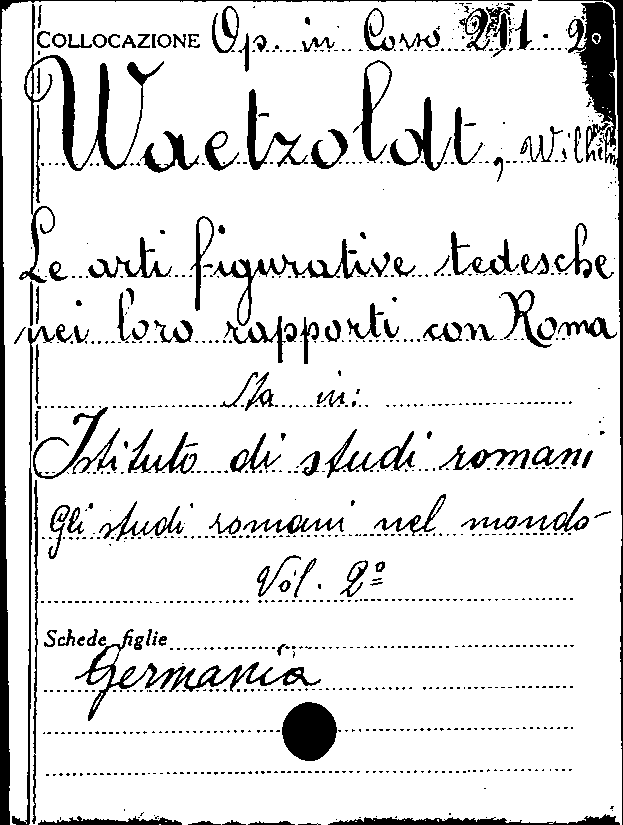 COLLOCAZIONE Op. in Corso 211. 2º
Waetzoldt, Wilhelm
Le arti figurative tedesche
nei loro rapporti con Roma
Sta in:
Istituto di studi romani
Gli studi romani nel mondo
Vol. 2º
Schede figlie
Germania